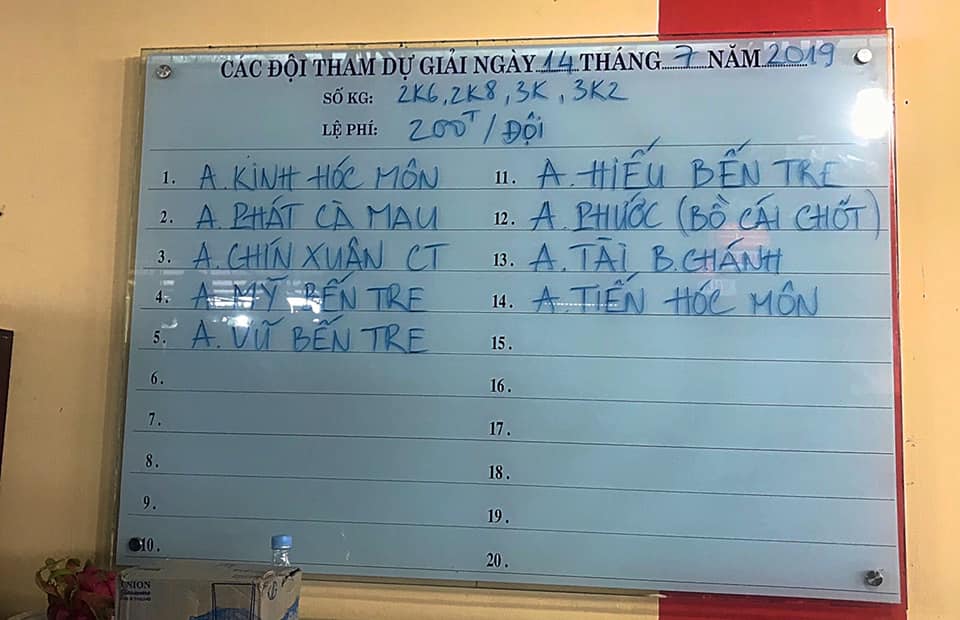 CÁC ĐỘI THAM DỰ GIẢI NGÀY 14 THÁNG 7 NĂM 2019
SỐ KG: 2K6, 2K8, 3K, 3K2
LỆ PHÍ: 200T / ĐỘI
1. A. KÌNH HÓC MÔN
2. A. PHÁT CÀ MAU
3. A. CHÍN XUÂN CT
4. A. MỸ BẾN TRE
5. A. VŨ BẾN TRE
6.
7.
8.
9.
10.
11. A. HIẾU BẾN TRE
12. A. PHƯỚC (BỒ CÁI CHỐT)
13. A. TÀI B. CHÁNH
14. A. TIẾN HÓC MÔN
15.
16.
17.
18.
19.
20.
UNION